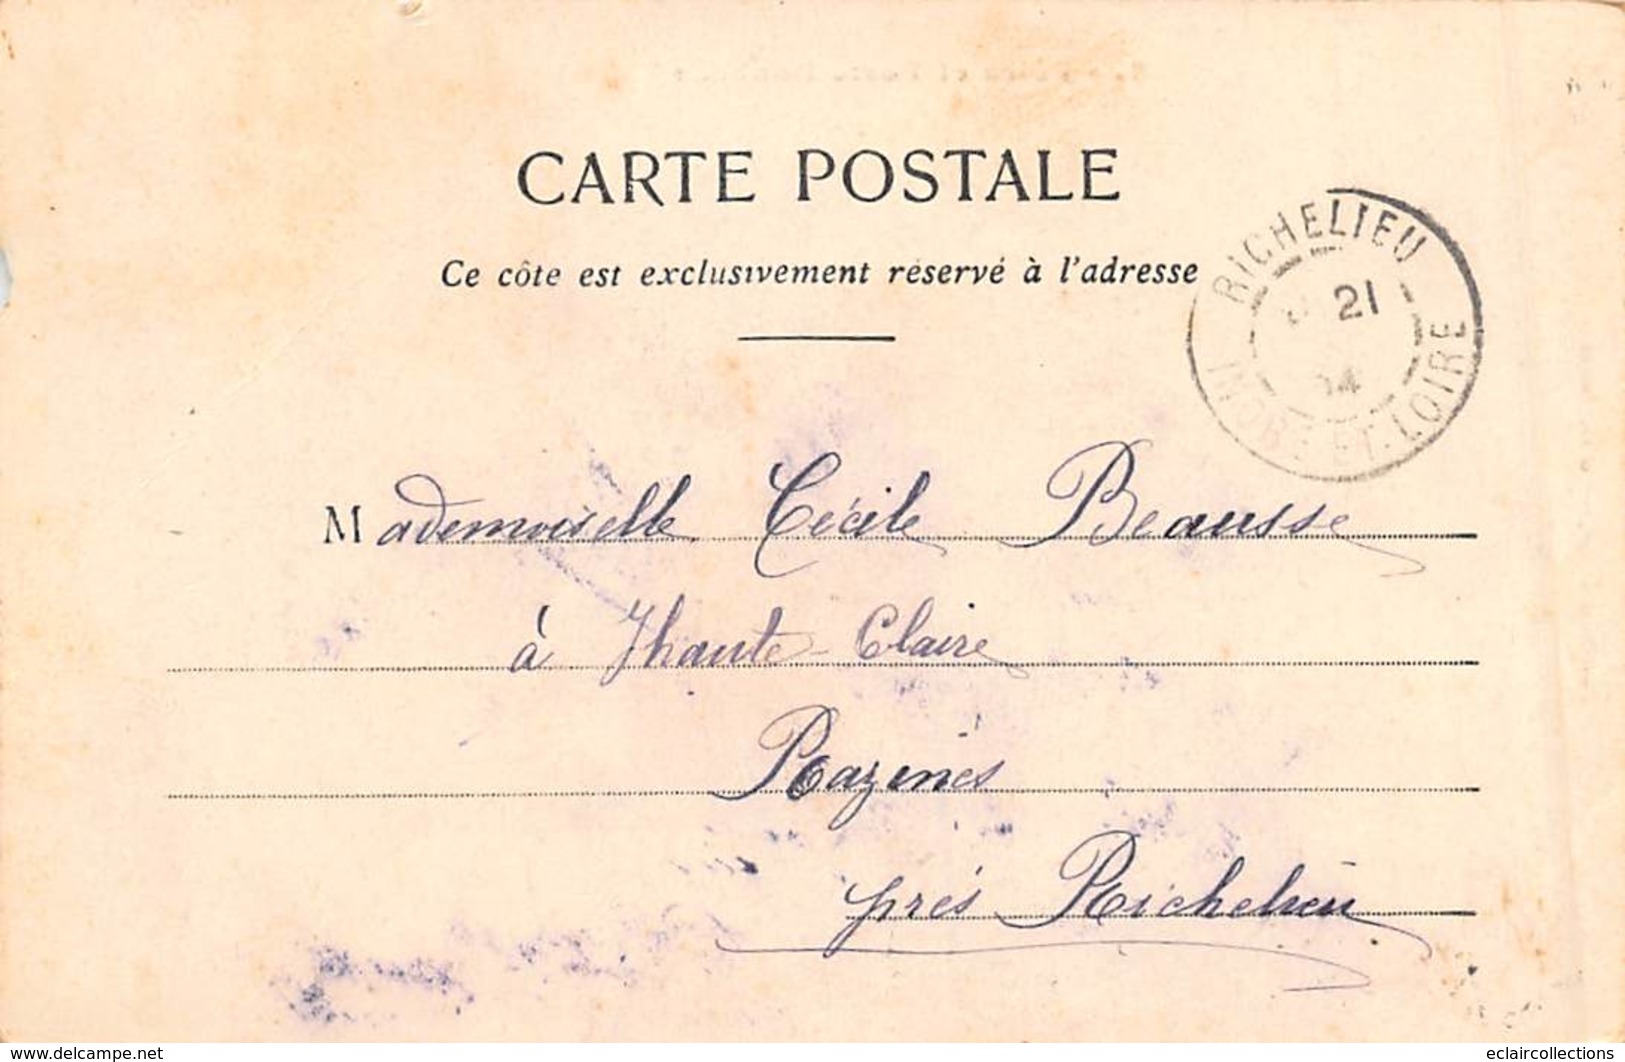 CARTE POSTALE
Ce côte est exclusivement réservé à l'adresse
RICHELIEU
21
04
INDRE-ET-LOIRE
Mademoiselle Cécile Beausse
à Thaute-Claire
Razines
près Richelieu
www.delcampe.net
eclaircollections